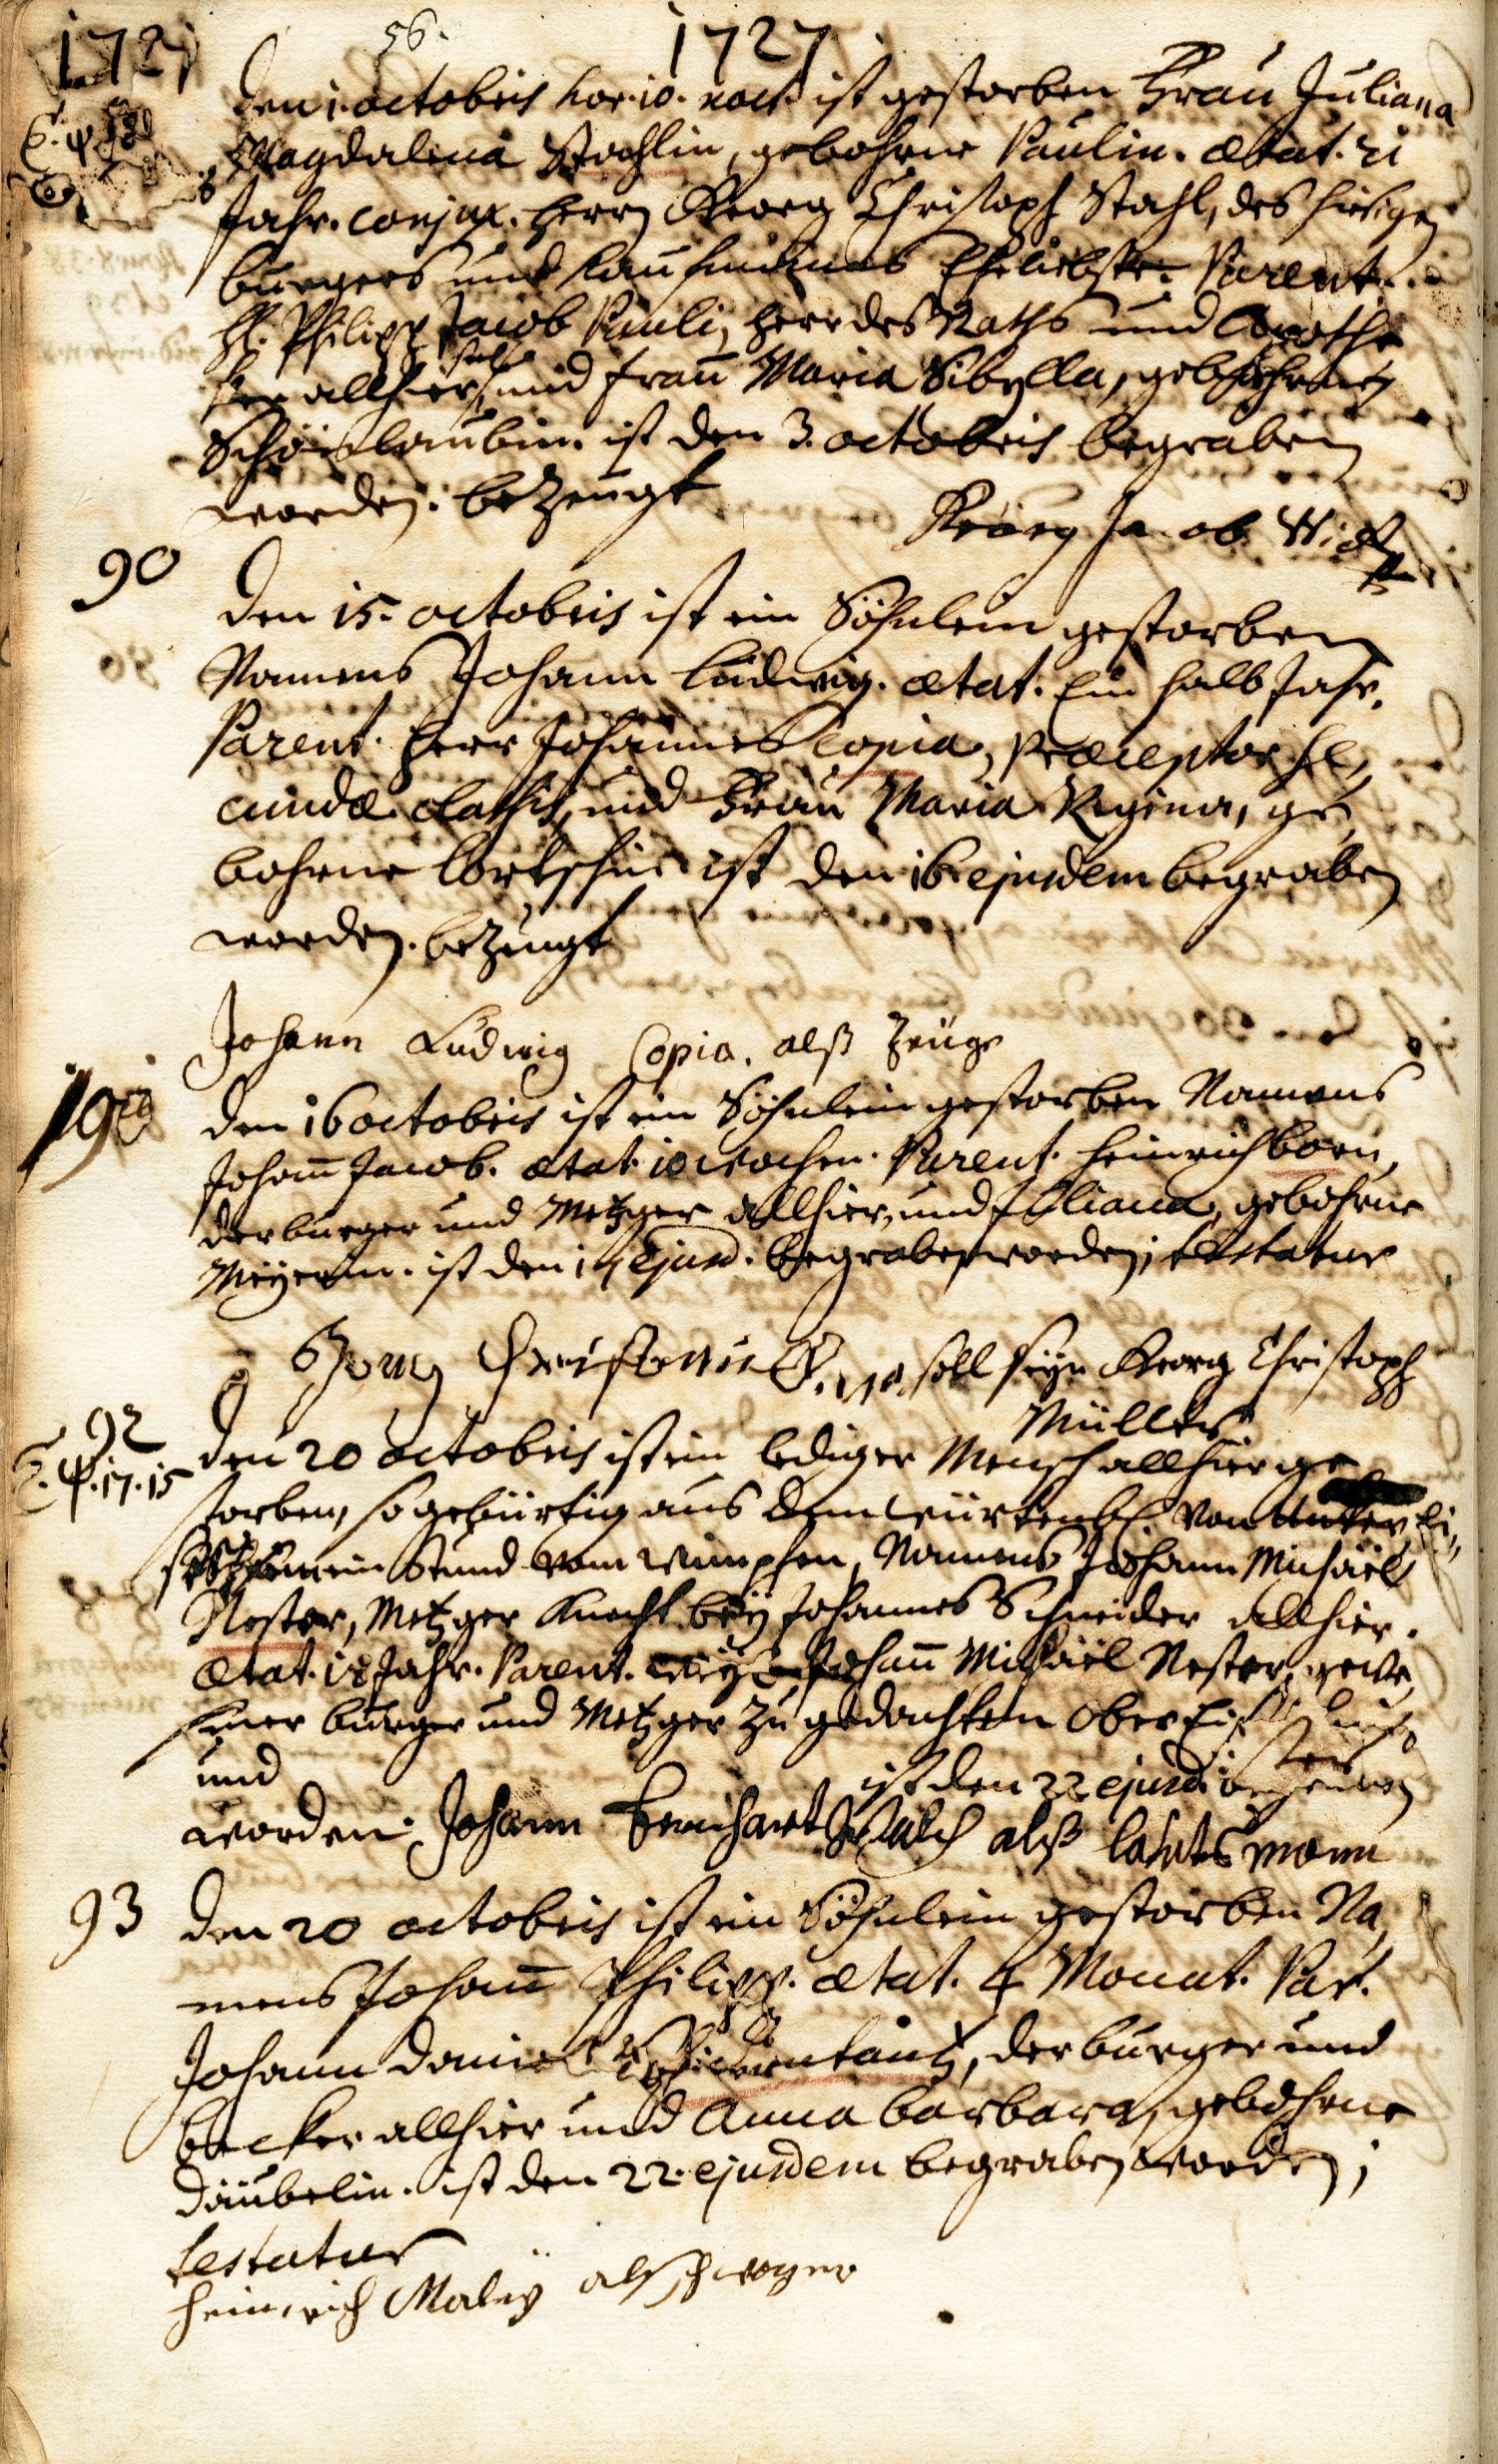 1727
56.
1727
den 1. octobris hor. 10. noct. ist gestorben Frau Juliana
Magdalena Stahlin, gebohrne Paulin. ætat. 21
Jahr. conjux. Herrn Georg Christoph Stahl, des hiesigen
burgers und kaufmanns Eheliebste. Parent.
H. Philipp Jacob Pauli, Herr des Raths und Apothe
ker allhier, und frau Maria Sibylla, gebohrne
Schönlaubin. ist den 3. octobris begraben
worden. bezeugt
Georg Jacob
90
den 15. octobris ist ein Söhnlein gestorben
Namens Johann Ludwig. ætat. Ein halb Jahr.
Parent. Herr Johannes Copia, Præceptor se,
cundæ classis, und Frau Maria Regina, ge,
bohrne ist den 16. ejusdem begraben
worden. bezeugt
Johann Ludwig Copia. alß Zeuge
den 16 octobris ist ein Söhnlein gestorben Namens
Johann Jacob. ætat. 10 wochen. Parent. Heinrich born,
der burger und Metzger allhier, und Juliana, gebohrne
Meyerin. ist den 17 ejusd. begraben worden; testatur
soll seyn Georg Christoph
Müller
92
ψ. 17. 15
den 20 octobris ist ein lediger Mensch allhier ge
storben, so gebürtig aus dem würtenb. von
ein Stund von wimpfen, Namens Johann Michäel
Nester, Metzger Knecht bey Johannes Schneider allhier.
ætat. 18 Jahr. Parent. Johann Michäel Nester, gewe,
sener burger und Metzger zu gedachtem Ober
und
ist den 22 ejusd.
worden. Johann alß lantsmann
93
den 20 octobris ist ein Söhnlein gestorben Na,
mens Johann Philipp. ætat. 4 Monat. Par.
Johann Daniel, der burger und
becker allhier und Anna barbara, gebohrne
däubelin. ist den 22. ejusdem begraben worden;
testatur
Heinrich Maley als schwager